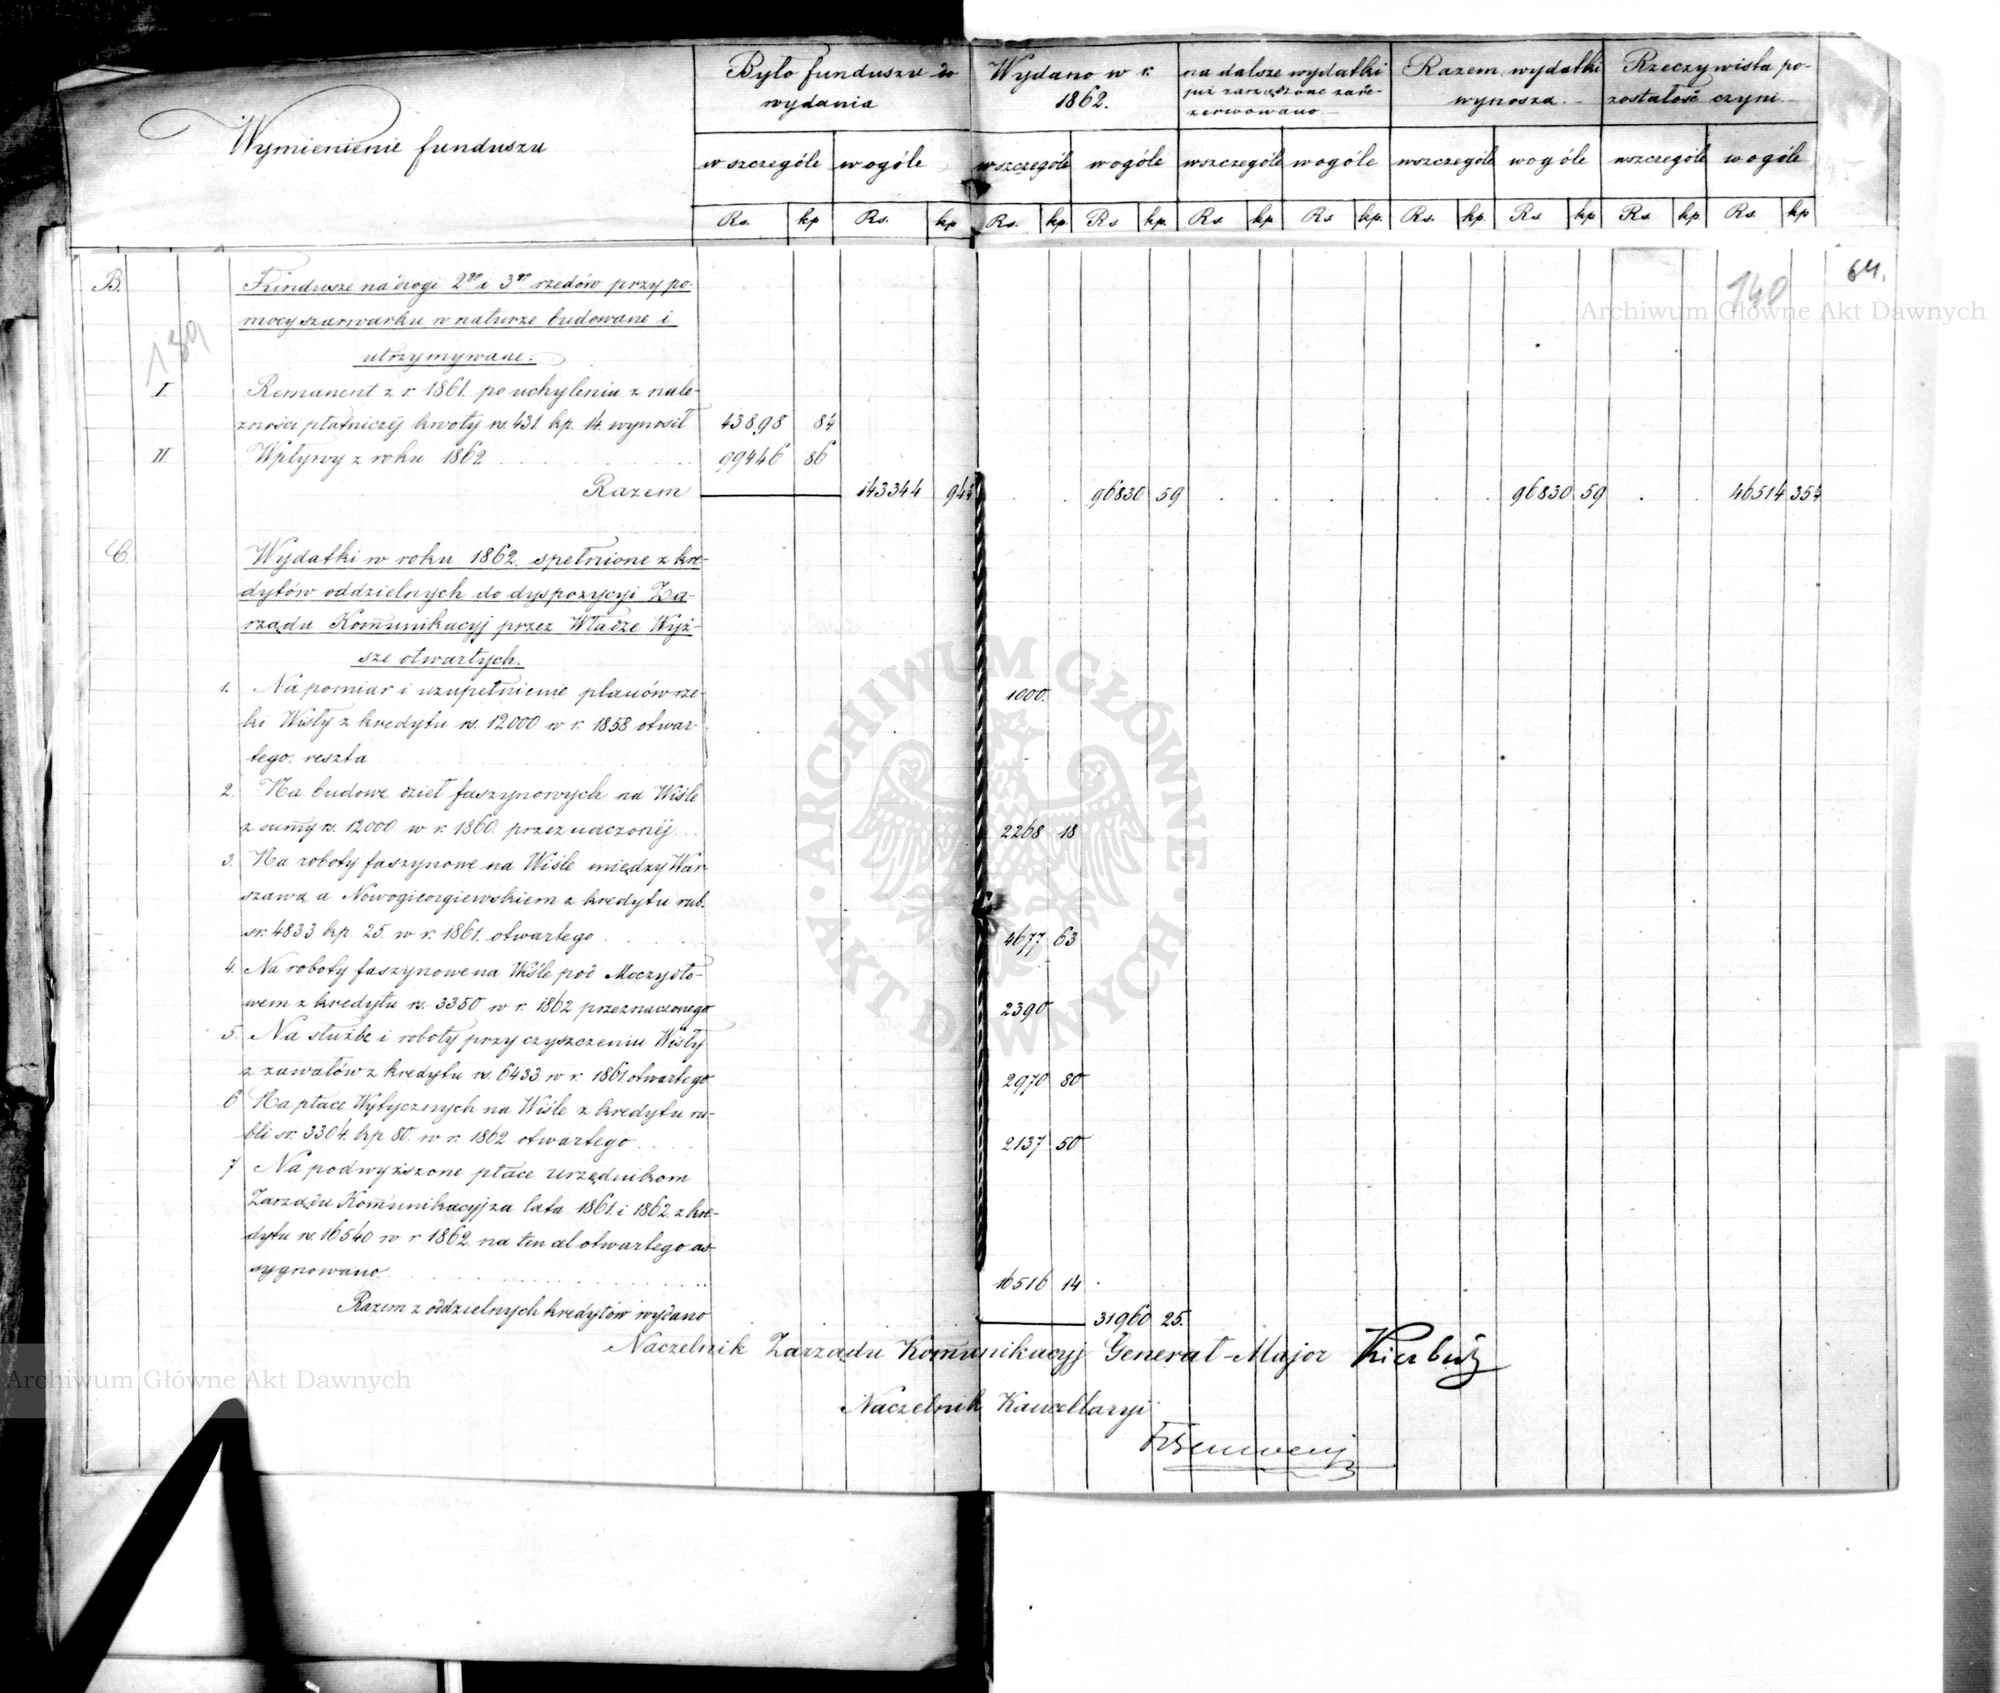 Wymienienie funduszu
Było funduszu do wydania
Wydano w r. 1862.
na dalsze wydatki już zarządzone zare-
zerwowano
Razem wydatki wynoszą
Rzeczywista po-
zostałość czyni
w szczególe w ogóle w szczególe w ogóle w szczególe w ogóle w szczególe w ogóle w szczególe w ogóle
Rs. kp Rs. kp Rs. kp Rs kp. Rs kp Rs kp. Rs. kp. Rs kp Rs kp Rs. kp
139
140
64.
B. Fundusze na drogi 2go i 3go rzędów przy po-
mocy szarwarku w naturze budowane i
utrzymywane.
I Remanent z r. 1861. po uchyleniu z nale-
żności płatniczej kwoty rs. 431. kp. 14. wynosił 43898 84
II Wpływy z roku 1862 99446 86
Razem 143344 94½ 96830 59 96830 59 46514 35½
C. Wydatki w roku 1862. spełnione z kre-
dytów oddzielnych do dyspozycyi Za-
rządu Komunikacyj przez Władze Wyż-
sze otwartych.
1. Na pomiar i uzupełnienie planów rze-
ki Wisły z kredytu rs. 12000 w r. 1858 otwar-
tego reszta 1000.
2. Na budowę dzieł faszynowych na Wiśle
z sumy rs. 12000 w r. 1860. przeznaczonéj 2268 18
3. Na roboty faszynowe na Wiśle między War-
szawą a Nowogieorgiewskiem z kredytu rub.
sr. 4833 kp 25. w r. 1861. otwartego 4677 63
4. Na roboty faszynowe na Wiśle pod Moczydło-
wem z kredytu rs. 3350 w r. 1862 przeznaczonego 2390
5. Na służbę i roboty przy czyszczeniu Wisły
z zawałów z kredytu rs. 6433 w r. 1861 otwartego 2970 80
6 Na płace Wytycznych na Wiśle z kredytu ru-
bli sr. 3304. kp 80. w r. 1862 otwartego 2137 50
7 Na podwyższone płace urzędnikom
Zarządu Komunikacyj za lata 1861. i 1862. z kre-
dytu rs. 16540 w r. 1862. na ten cel otwartego as-
sygnowano 16516 14
Razem z oddzielnych kredytów wydano 31960 25.
Naczelnik Zarządu Komunikacyj Generał-Major Kierbedź
Naczelnik Kancellaryi
Archiwum Główne Akt Dawnych
Archiwum Główne Akt Dawnych
ARCHIWUM GŁÓWNE · AKT DAWNYCH ·